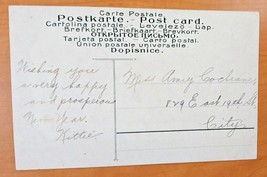 Carte Postale.
Postkarte. - Post card.
Cartolina postale - Levelező-Lap.
Brefkort.- Briefkaart- Brevkort.
ОТКРЫТОЕ ПИСЬМО.
Tarjeta postal. - Carta postal.
Union postale universelle.
Dopisnice.
Wishing you
a very happy
and prosperous
New Year.
Kittie
Miss Amy Cochrane,
829 East 19th St,
City.